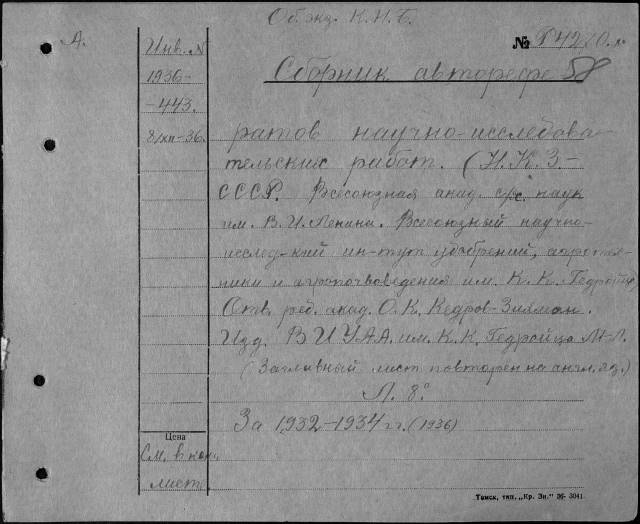 Об. экз. К.Н.Б.
А.
Инв. №
№ Р4270.л.
58
1936-
-443.
8/XII-36.
Сборник авторефе
ратов научно-исследова
тельских работ. (Н.К.З-
СССР. Всесоюзная акад. с/с. наук
им. В.И.Ленина. Всесоюзный научно-
исслед-кий ин-тут удобрений, агротех-
ники и агропочвоведения им. К.К. Гедройца
Отв. ред. акад. О.К. Кедров-Зихман.
Изд. ВИУАА. им. К.К. Гедройца М-Л.
(Заглавный лист повторен на англ. яз.)
Л. 8°
За 1932-1934 гг. (1936)
Цена
См. в конц.
лист.
Томск, тип. „Кр. Зн." 36- 3041.